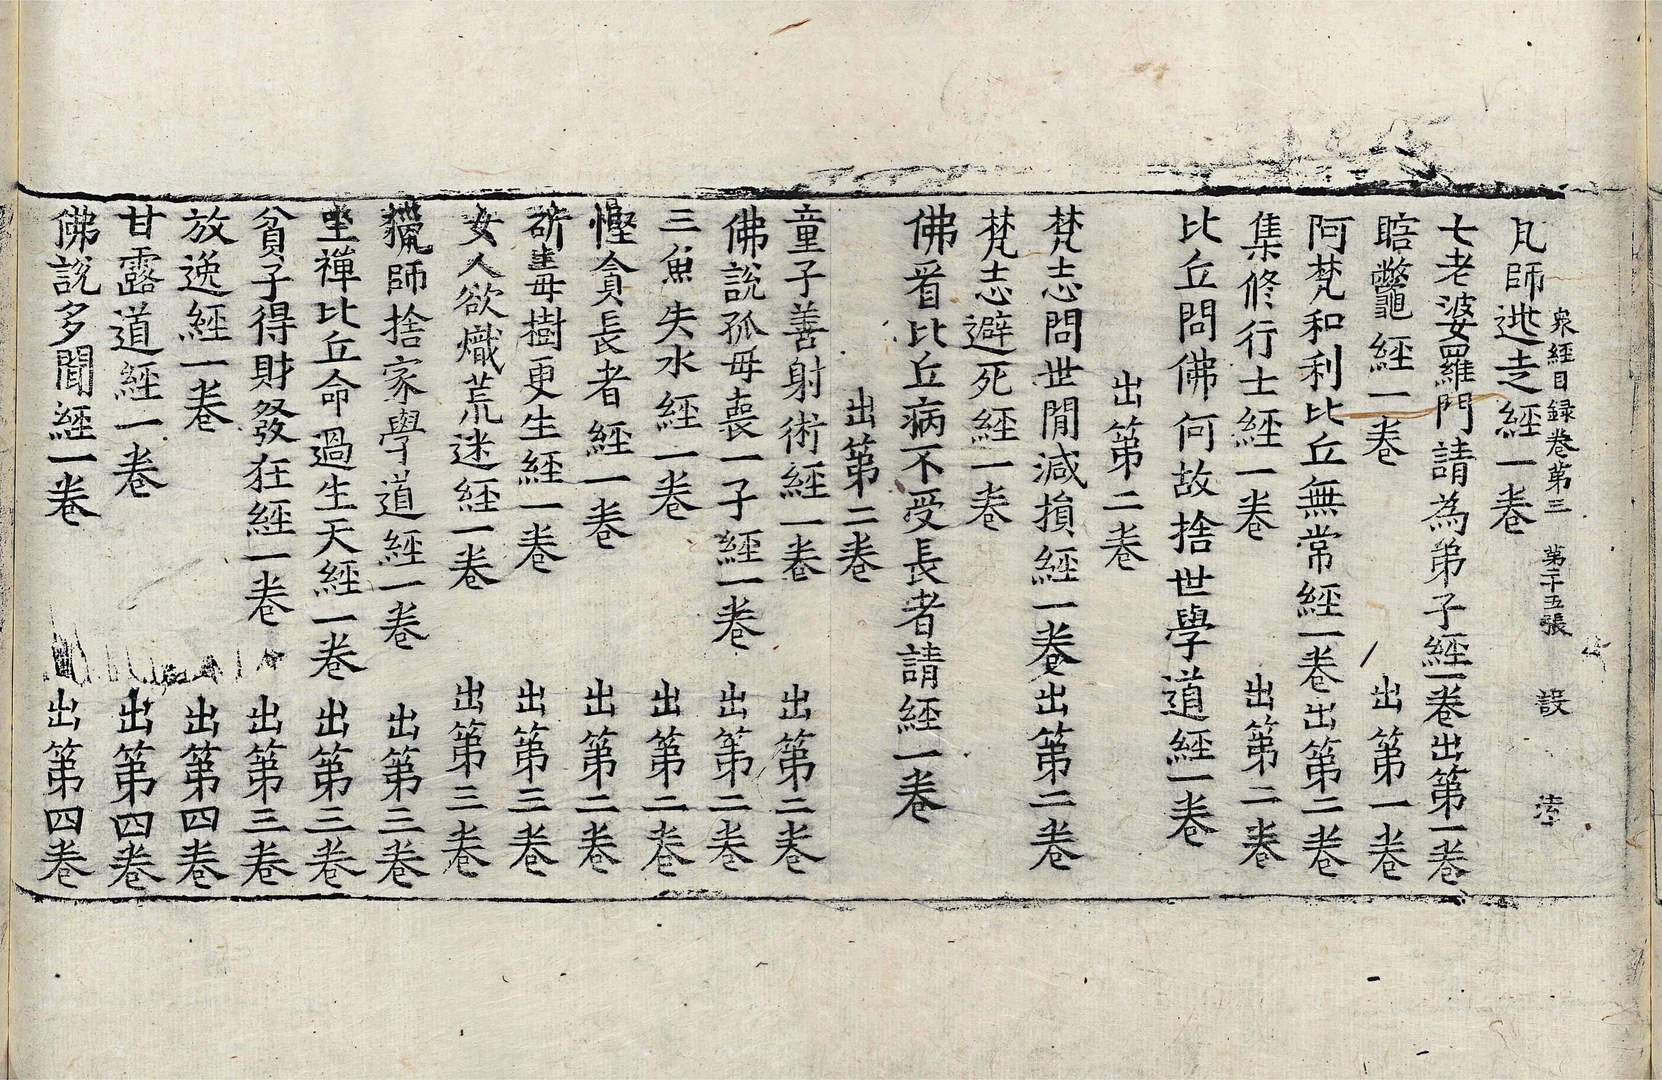 衆經目録卷第三 第二十五張 設
瓦師逃走經一卷
七老婆羅門請為弟子經一卷出第一卷
瞎鼈經一卷 出第一卷
阿梵和利比丘無常經一卷出第二卷
集修行士經一卷 出第二卷
比丘問佛何故捨世學道經一卷
出第二卷
梵志問世間減損經一卷出第二卷
梵志避死經一卷
佛看比丘病不受長者請經一卷
出第二卷
童子善射術經一卷 出第二卷
佛説孤母喪一子經一卷 出第二卷
三魚失水經一卷 出第二卷
慳貪長者經一卷 出第二卷
斫毒樹更生經一卷 出第三卷
女人欲熾荒迷經一卷 出第三卷
獵師捨家學道經一卷 出第三卷
坐禪比丘命過生天經一卷 出第三卷
貧子得財發狂經一卷 出第三卷
放逸經一卷 出第四卷
甘露道經一卷 出第四卷
佛説多聞經一卷 出第四卷